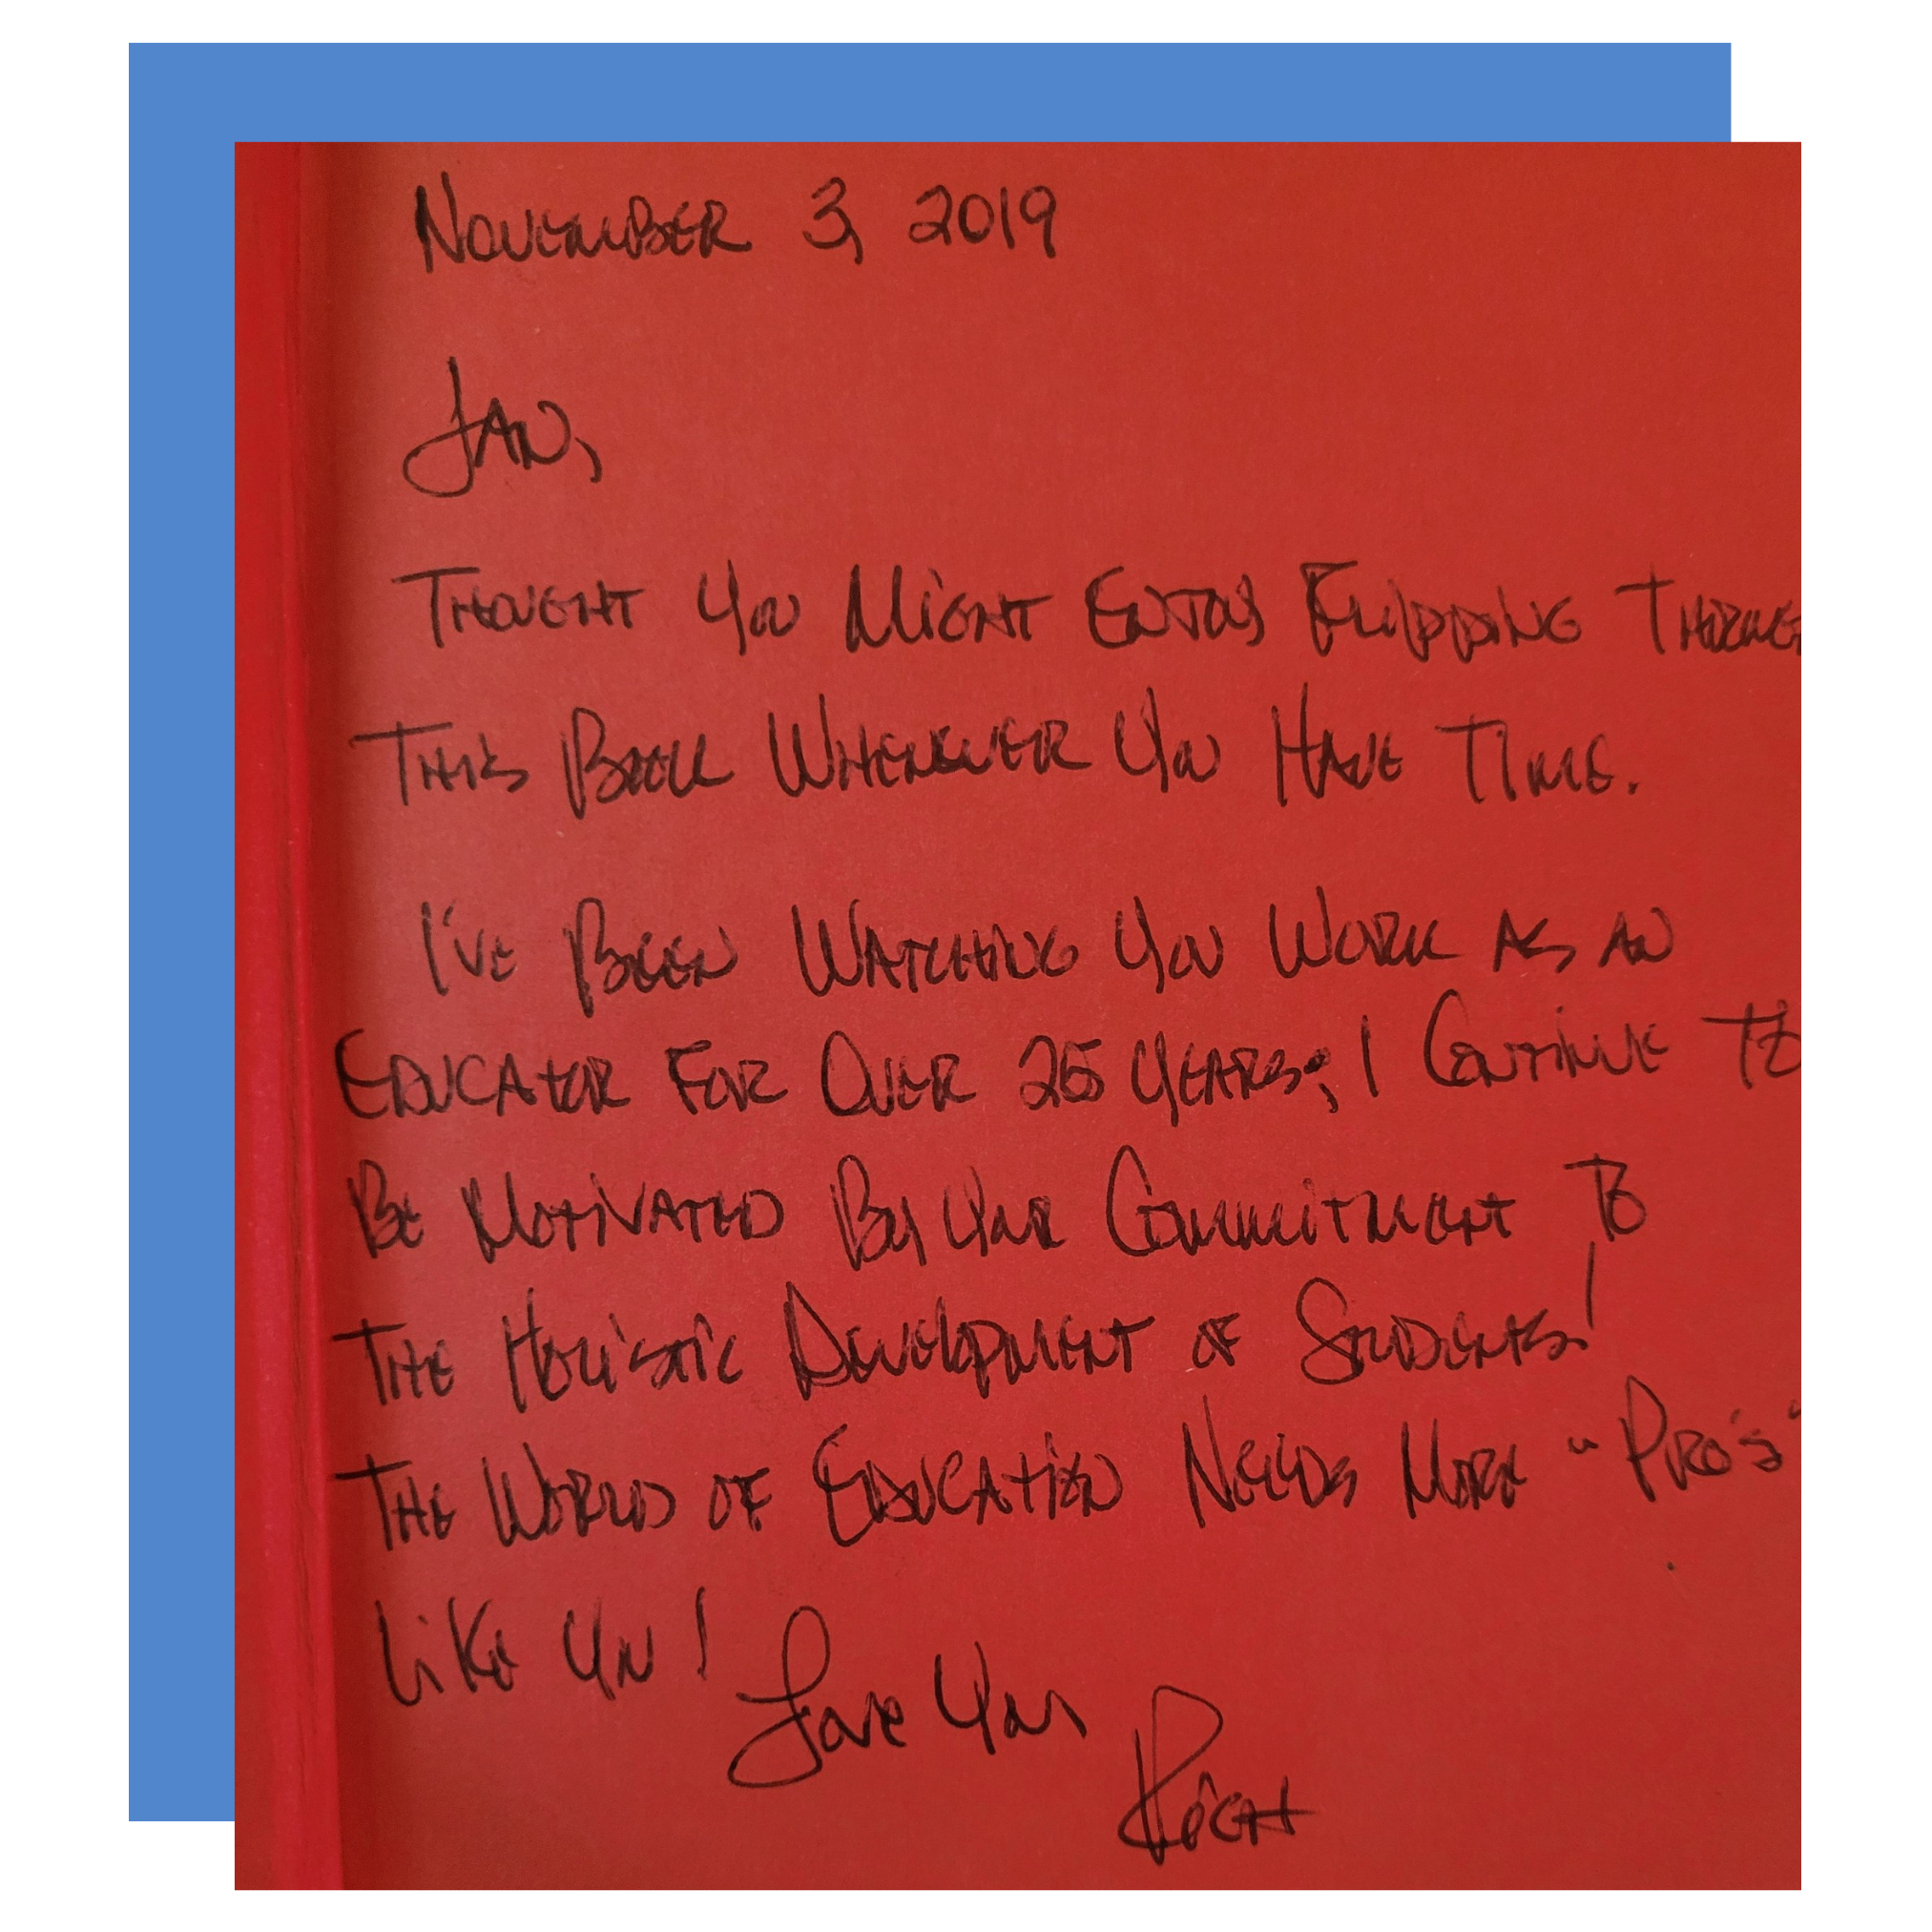 November 3, 2019
Jan,
Thought You Might Enjoy Flipping Throug
This Book Whenever You Have Time.
I've Been Watching You Work As An
Educator For Over 25 Years; I Continue To
Be Motivated By Your Commitment To
The Holistic Development of Students!
The World of Education Needs More "Pro's"
Like You!
Love You,
Rich